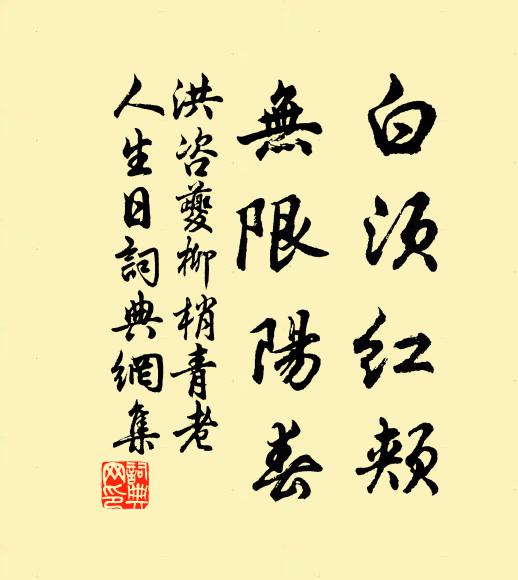 白須紅頰
無限陽春
洪咨夔柳梢青老
人生日詞典網集
詞典網印